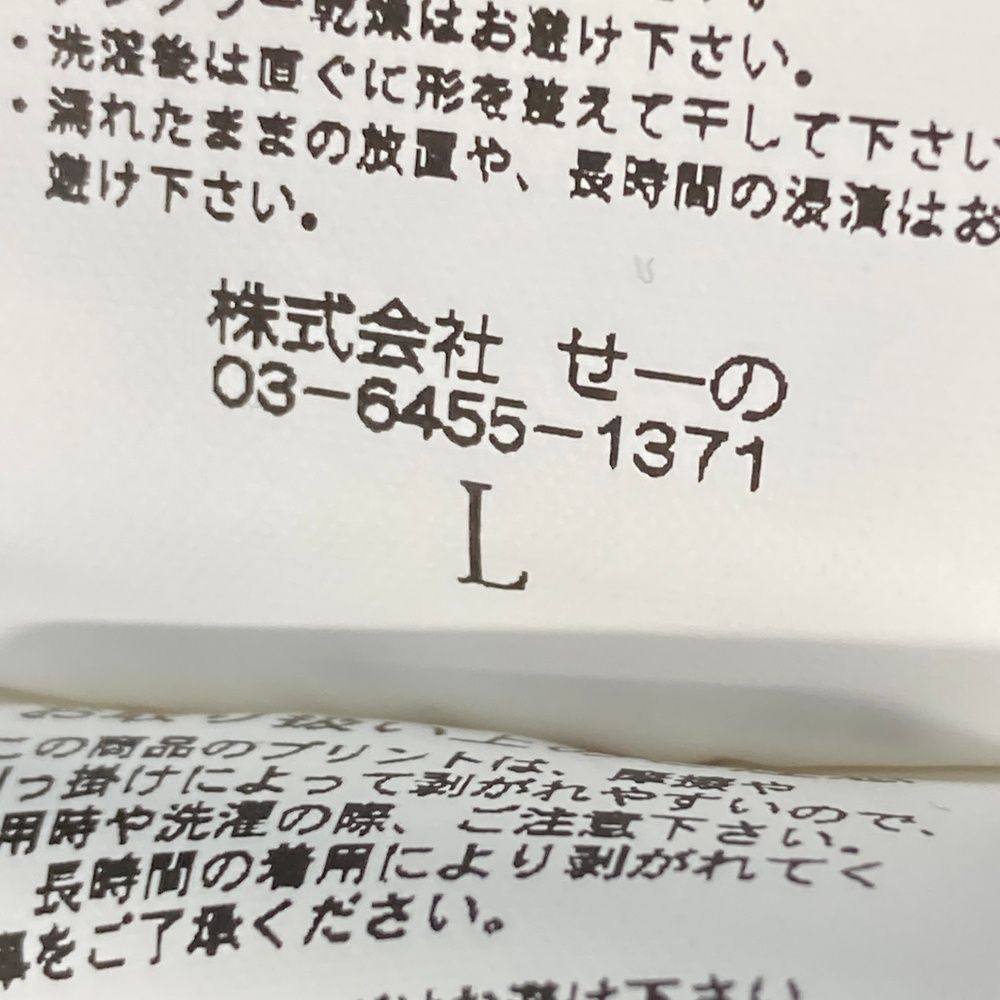 乾燥はお避け下さい。
・洗濯後は直ぐに形を整えて干して下さい
・濡れたままの放置や、長時間の浸漬はお
避け下さい。
株式会社 せーの
03-6455-1371
L
お取り扱い上
この商品のプリントは、摩擦や
引っ掛けによって剥がれやすいので、
用時や洗濯の際、ご注意下さい。
長時間の着用により剥がれてく
事をご了承ください。
お避け下さい